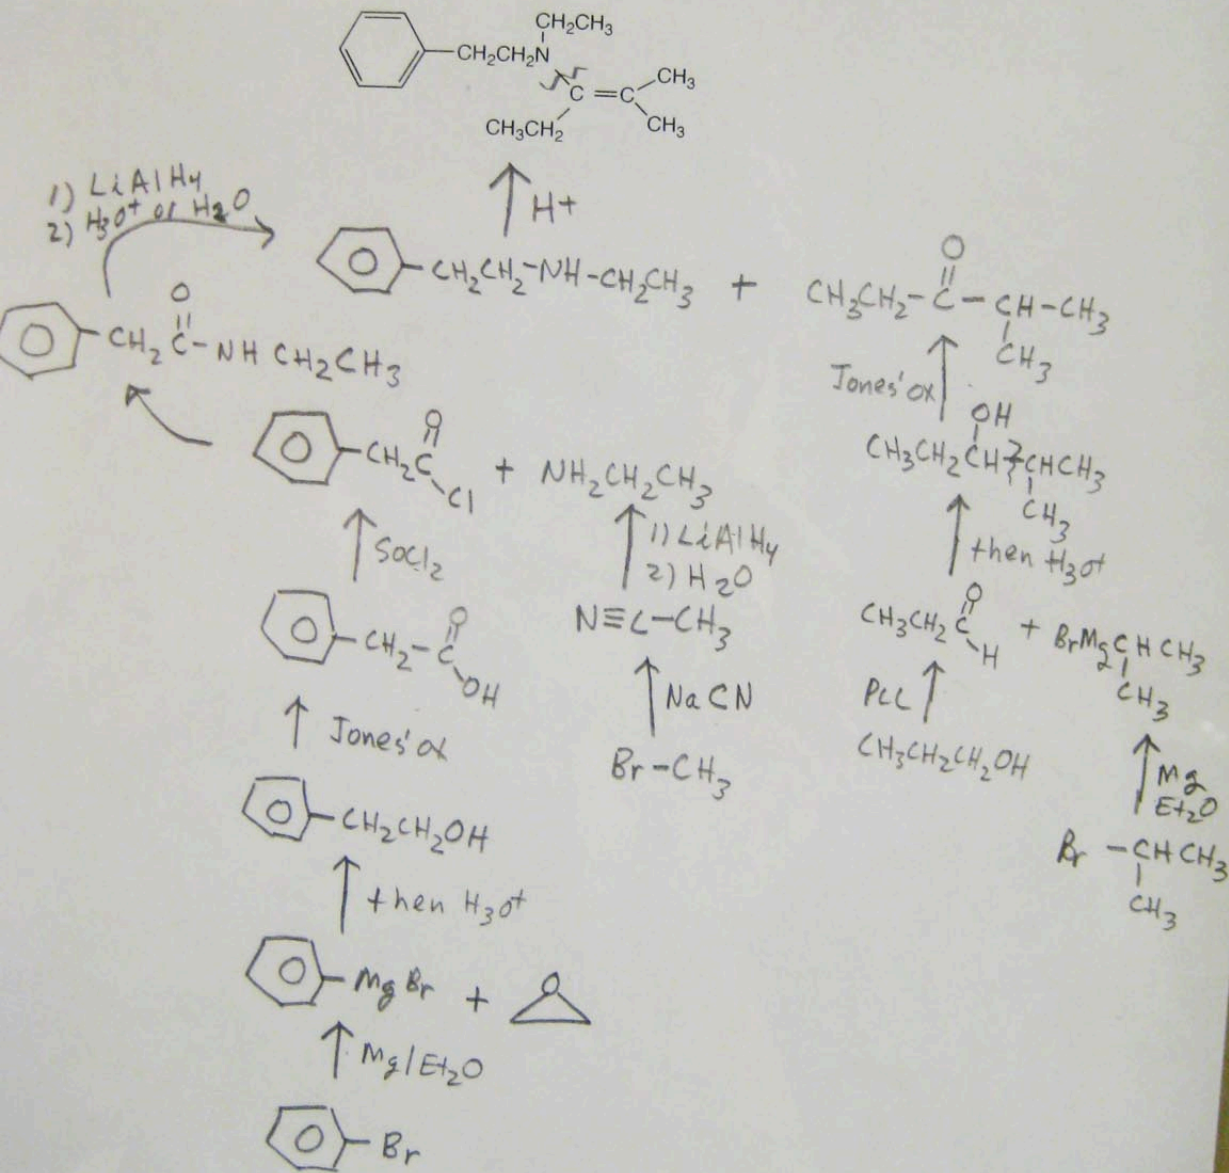 CH₂CH₃
CH₂CH₂N
C=C
CH₃
CH₃CH₂
CH₃
1) LiAlH4
2) H3O+ or H2O
H+
CH₂CH₂-NH-CH₂CH₃ + CH₃CH₂-C-CH-CH₃
O
CH₃
CH₂C-NHCH₂CH₃
O
Jones' ox
CH₂C
O
Cl
+ NH₂CH₂CH₃
OH
CH₃CH₂CH CHCH₃
CH₃
SOCl2
1) LiAlH4
2) H2O
then H3O+
CH₂-C
O
OH
N≡C-CH₃
CH₃CH₂C
O
H
+ BrMgCHCH₃
CH₃
Jones' ox
NaCN
PCC
Br-CH₃
CH₃CH₂CH₂OH
Mg
Et2O
CH₂CH₂OH
Br-CHCH₃
CH₃
then H3O+
MgBr +
O
Mg/Et2O
Br